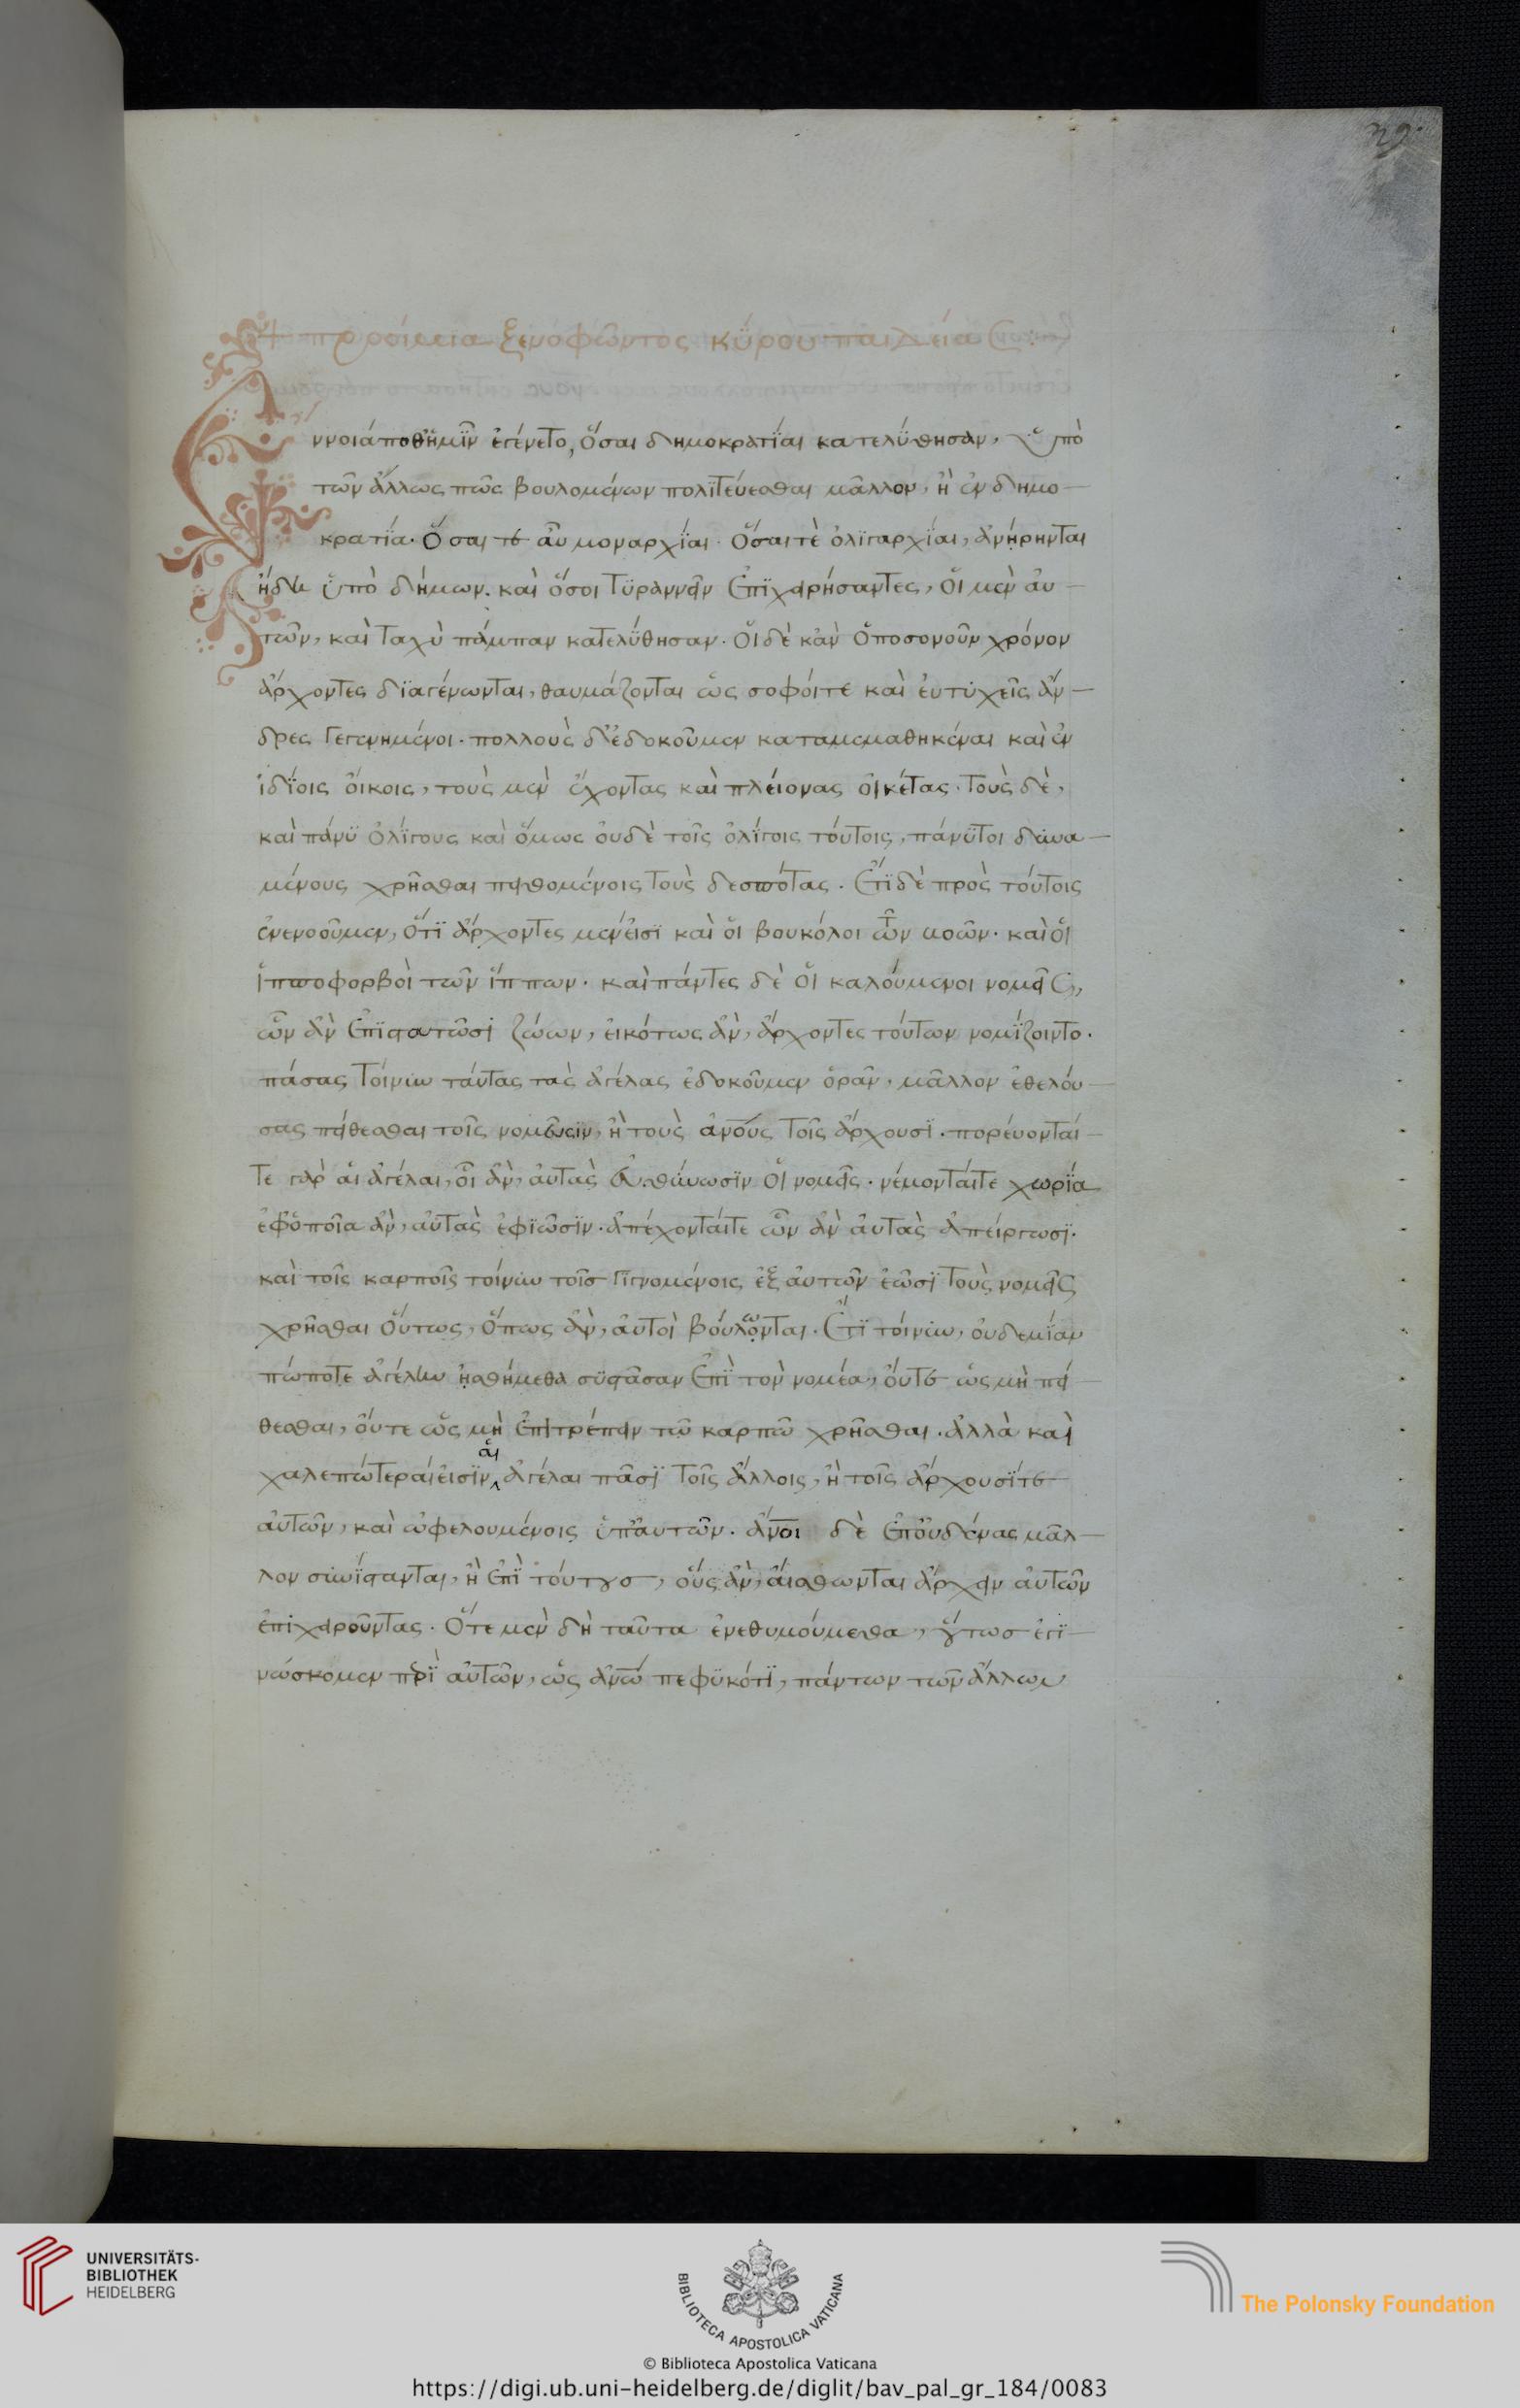 29.
ξενοφῶντος κύρου παιδεία
ννοιά ποθ' ἡμῖν ἐγένετο, ὅσαι δημοκρατίαι κατελύθησαν, ὑπὸ
τῶν ἄλλως πῶς βουλομένων πολιτεύεσθαι μᾶλλον, ἢ ἐν δημο
κρατία. ὅσαι τε αὖ μοναρχίαι. ὅσαι τὲ ὀλιγαρχίαι, ἀνήρηνται
ἤδη ὑπὸ δήμων. καὶ ὅσοι τυραννεῖν ἐπιχειρήσαντες, οἱ μὲν αὐ
τῶν, καὶ ταχὺ πάμπαν κατελύθησαν. οἱ δὲ κἀν ὁποσονοῦν χρόνον
ἄρχοντες διαγένωνται, θαυμάζονται ὡς σοφοί τε καὶ ἐυτυχεῖς ἄν
δρες γεγενημένοι. πολλοὺς δ' ἐδοκοῦμεν καταμεμαθηκέναι καὶ ἐν
ἰδίοις οἴκοις, τοὺς μὲν ἔχοντας καὶ πλείονας οἰκέτας. τοὺς δὲ,
καὶ πάνυ ὀλίγους καὶ ὅμως ὀυδὲ τοῖς ὀλίγοις τούτοις, πάνυ τοι δυνα
μένους χρῆσθαι πειθομένοις τοὺς δεσπότας. ἔτι δὲ πρὸς τούτοις
ἐνενοοῦμεν, ὅτι ἄρχοντες μέν εἰσι καὶ οἱ βουκόλοι τῶν βοῶν. καὶ οἱ
ἱπποφορβοὶ τῶν ἵππων. καὶ πάντες δὲ οἱ καλούμενοι νομεῖς,
ὧν ἂν ἐπιστατῶσι ζώων, εἰκότως ἂν, ἄρχοντες τούτων νομίζοιντο.
πάσας τοίνυν ταύτας τὰς ἀγέλας ἐδοκοῦμεν ὁρᾶν, μᾶλλον ἐθελού
σας πείθεσθαι τοῖς νομεῦσιν, ἢ τοὺς ἀνους τοῖς ἄρχουσι. πορεύονταί
τε γὰρ αἱ ἀγέλαι, οἷ ἂν, ἀυτὰς εὐθύνωσιν οἱ νομεῖς. νέμονταί τε χωρία
ἐφ' ὁποῖα ἂν, αὐτὰς ἐφιῶσιν. ἀπέχονταί τε ὧν ἂν ἀυτὰς ἀπείργωσι.
καὶ τοῖς καρποῖς τοίνυν τοῖς γιγνομένοις ἐξ ἀυτῶν ἐῶσι τοὺς νομεῖς
χρῆσθαι οὕτως, ὅπως ἂν, ἀυτοὶ βούλωνται. ἔτι τοίνυν, ὀυδεμίαν
πώποτε ἀγέλην ἠσθήμεθα συστᾶσαν ἐπὶ τὸν νομέα, ὄυτε ὡς μὴ πεί
θεσθαι, ὄυτε ὡς μὴ ἐπιτρέπειν τῶ καρπῶ χρῆσθαι. ἀλλὰ καὶ
χαλεπώτεραί εἰσιν αἱ ἀγέλαι πᾶσι τοῖς ἄλλοις, ἢ τοῖς ἄρχουσί τε
ἀυτῶν, καὶ ὠφελουμένοις ὑπ' ἀυτῶν. ἄνοι δὲ ἐπ' ὀυδένας μᾶλ
λον συνίστανται, ἢ ἐπὶ τούτους, οὓς ἂν, ἄισθωνται ἄρχειν ἀυτῶν
ἐπιχειροῦντας. ὅτε μὲν δὴ ταῦτα ἐνεθυμούμεθα, οὕτως ἐγι
νώσκομεν περὶ αὐτῶν, ὡς ἀνω πεφυκότι, πάντων τῶν ἄλλων
UNIVERSITÄTS-
BIBLIOTHEK
HEIDELBERG
BIBLIOTECA APOSTOLICA VATICANA
The Polonsky Foundation
© Biblioteca Apostolica Vaticana
https://digi.ub.uni-heidelberg.de/diglit/bav_pal_gr_184/0083